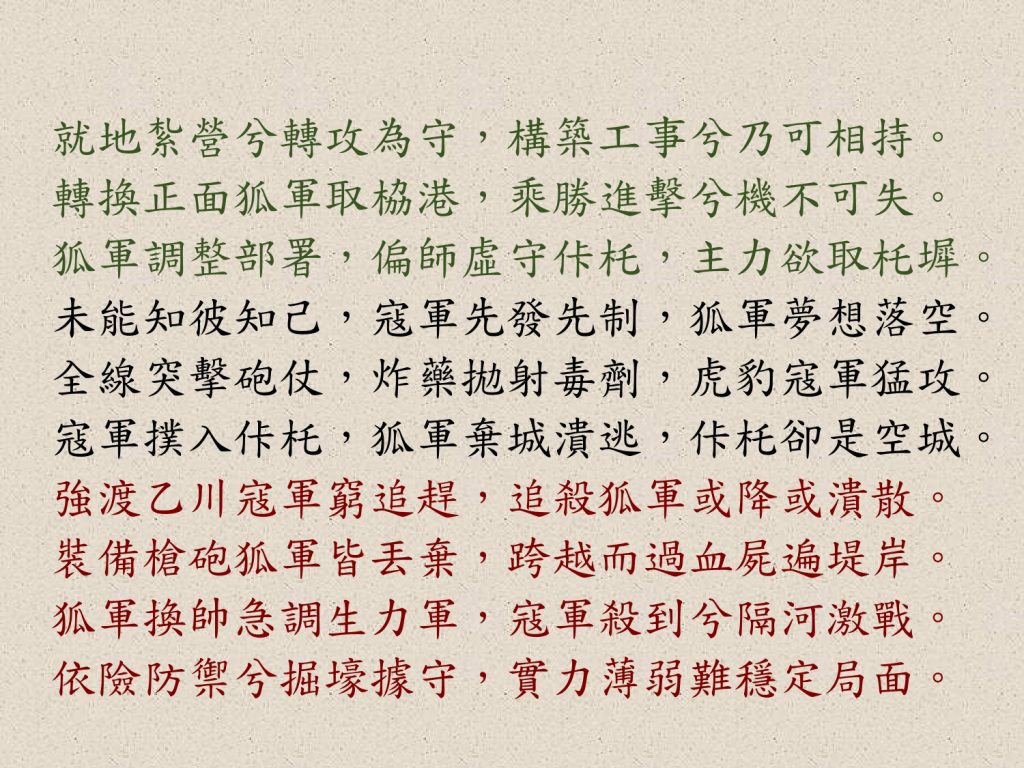 就地紮營兮轉攻為守，構築工事兮乃可相持。
轉換正面狐軍取栛港，乘勝進擊兮機不可失。
狐軍調整部署，偏師虛守佧杔，主力欲取杔墀。
未能知彼知己，寇軍先發先制，狐軍夢想落空。
全線突擊砲仗，炸藥拋射毒劑，虎豹寇軍猛攻。
寇軍撲入佧杔，狐軍棄城潰逃，佧杔卻是空城。
強渡乙川寇軍窮追趕，追殺狐軍或降或潰散。
裝備槍砲狐軍皆丟棄，跨越而過血屍遍堤岸。
狐軍換帥急調生力軍，寇軍殺到兮隔河激戰。
依險防禦兮掘壕據守，實力薄弱難穩定局面。